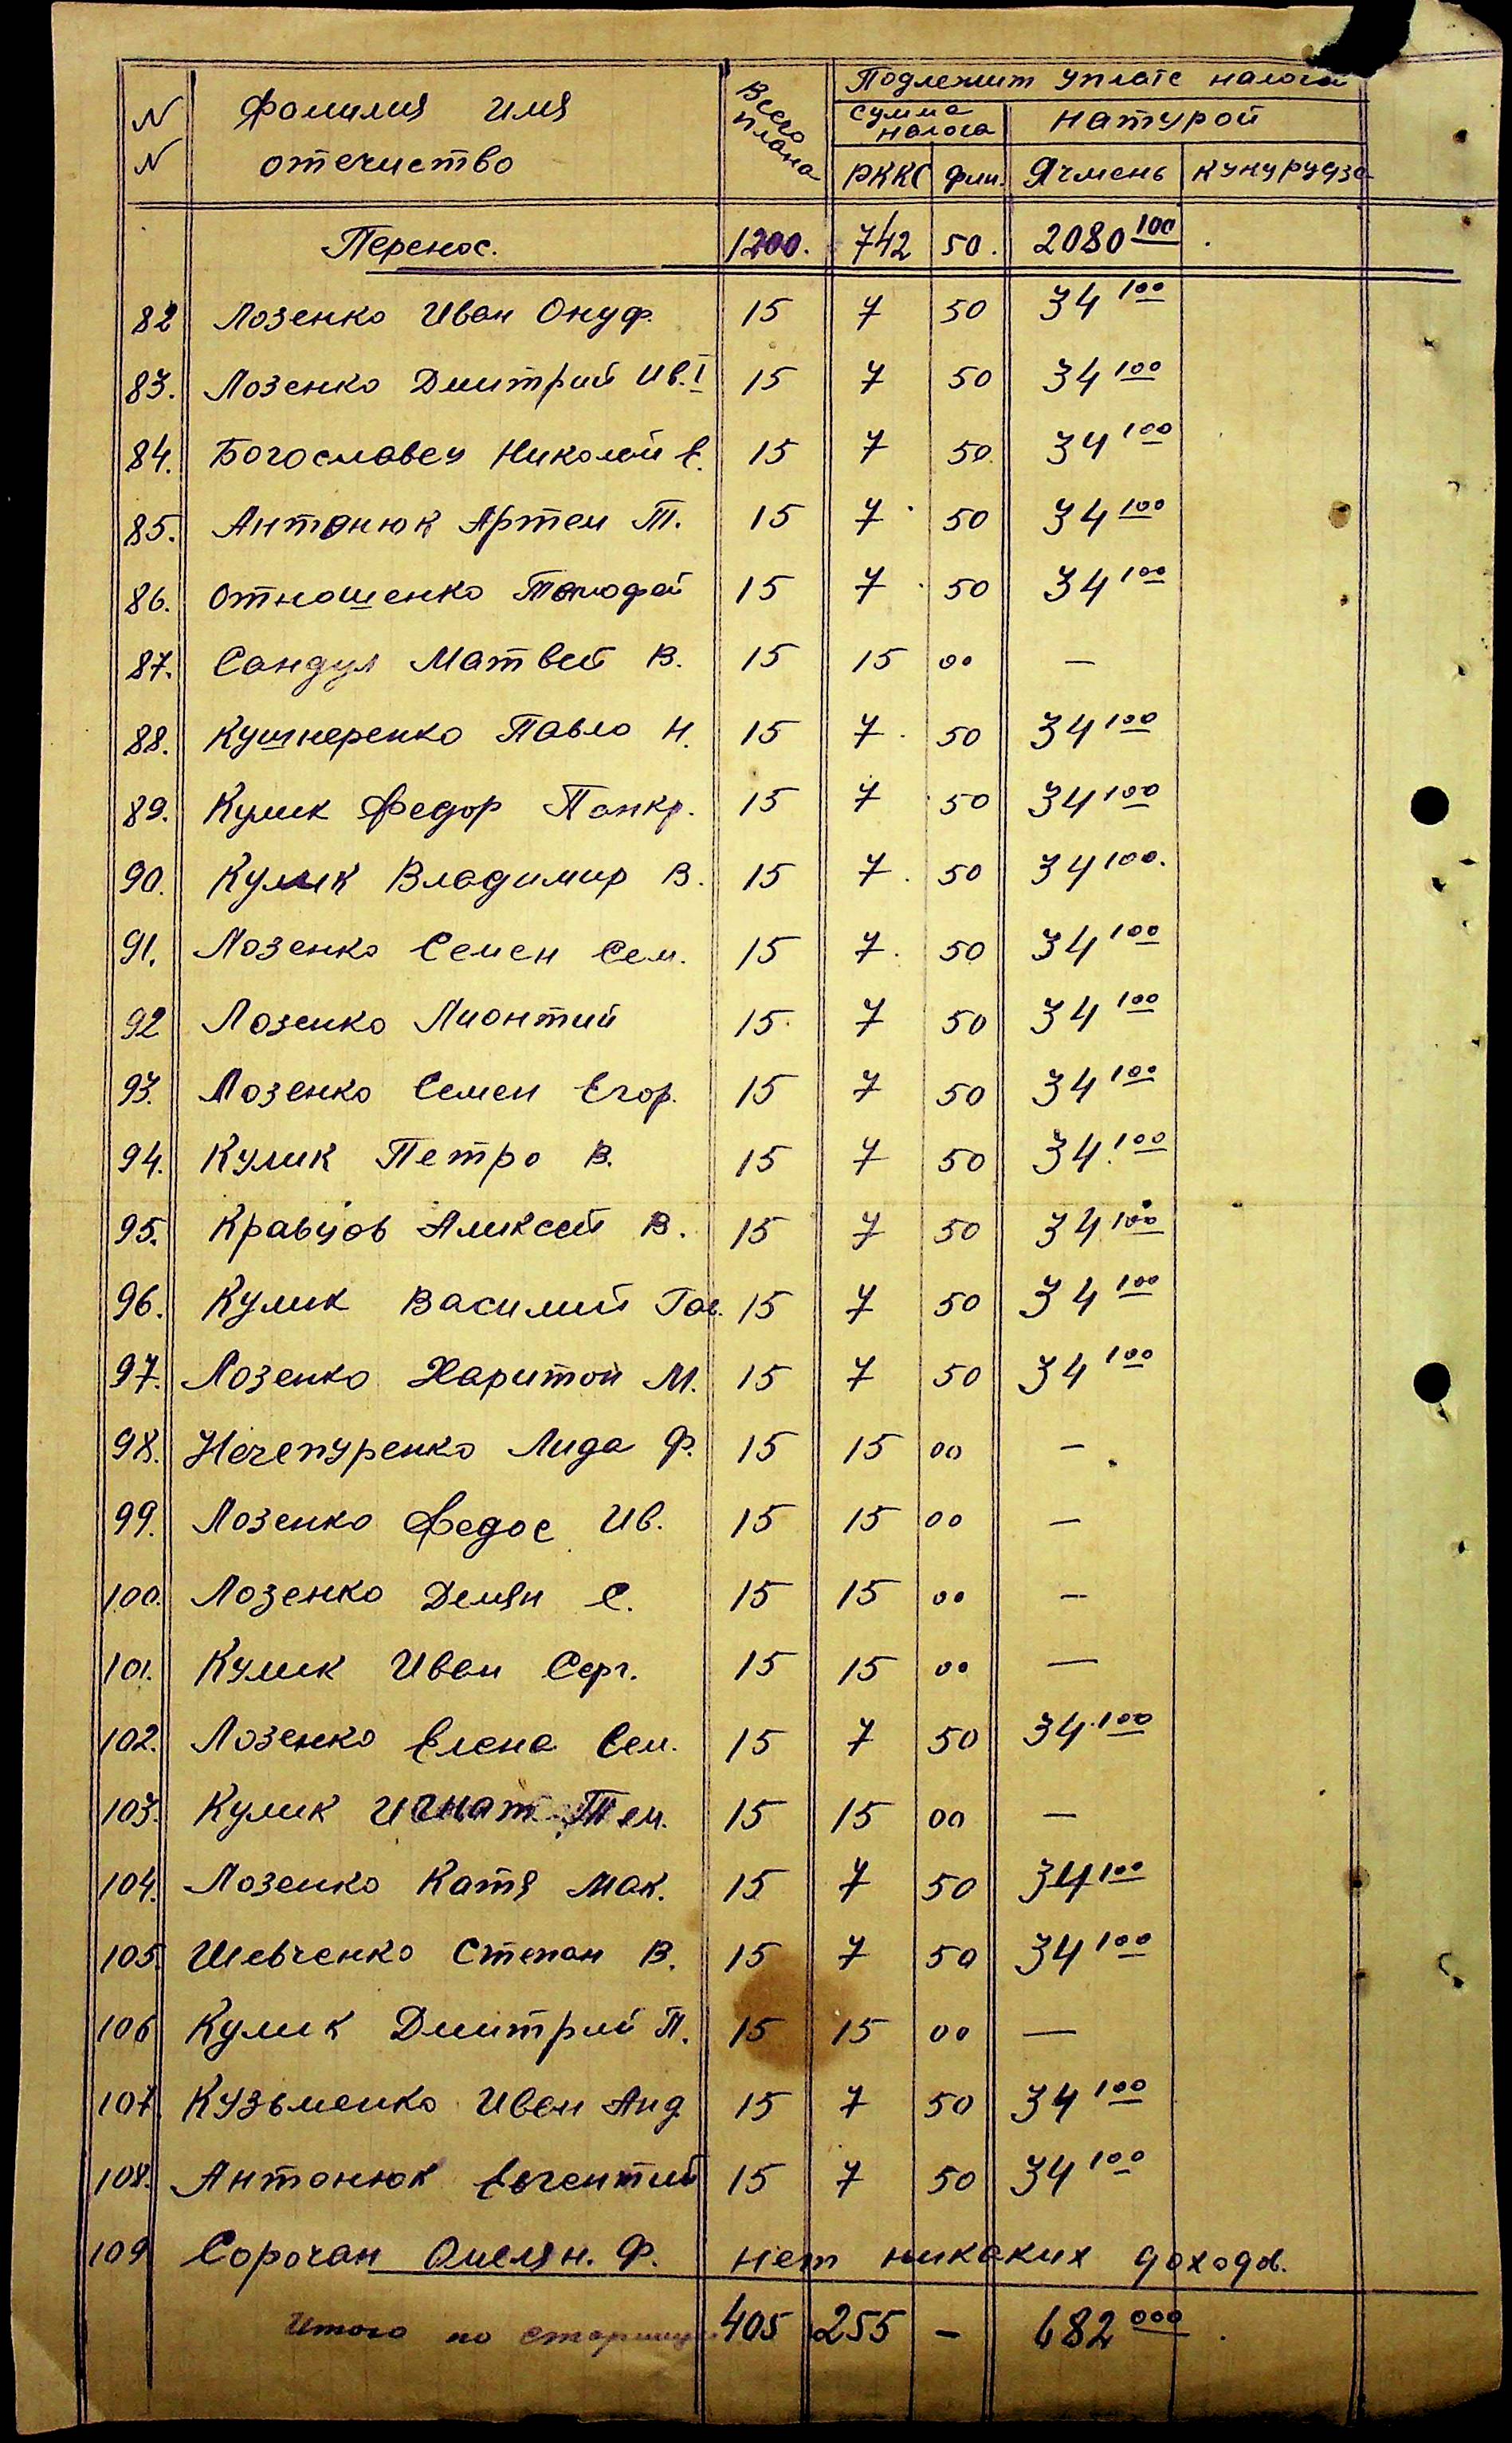 N N Фамилия Имя отечиство Всего плана Подлежит уплате налога
сумма налога Натурой
РККС Фин. Ячмень кукурудза
Перенос. 1200. 742 50. 2080 100
82 Лозенко Иван Онуф. 15 7 50 34 100
83. Лозенко Дмитрий Ив. I 15 7 50 34 100
84. Богославец Николай Е. 15 7 50 34 100
85. Антонюк Артем Т. 15 7 50 34 100
86. Отношенко 15 7 50 34 100
87. Сандул Матвей В. 15 15 00 —
88. Кушнеренко Павло Н. 15 7 50 34 100
89. Кулик Федор Панкр. 15 7 50 34 100
90. Кулик Владимир В. 15 7 50 34 100.
91. Лозенко Семен Сем. 15 7 50 34 100
92 Лозенко Лионтий 15 7 50 34 100
93. Лозенко Семен Егор. 15 7 50 34 100
94. Кулик Петро В. 15 7 50 34 100
95. Кравцов Аликсей В. 15 7 50 34 100
96. Кулик Василий 15 7 50 34 100
97. Лозенко Харитон М. 15 7 50 34 100
98. Нечепуренко Лида Ф. 15 15 00 —
99. Лозенко Федос Ив. 15 15 00 —
100. Лозенко Демян С. 15 15 00 —
101. Кулик Иван Серг. 15 15 00 —
102. Лозенко Елена Сем. 15 7 50 34 100
103. Кулик Игнат Тем. 15 15 00 —
104. Лозенко Катя Мак. 15 7 50 34 100
105. Шевченко Степан В. 15 7 50 34 100
106 Кулик Дмитрий П. 15 15 00 —
107. Кузьменко Иван Анд 15 7 50 34 100
108. Антонюк Евгентий 15 7 50 34 100
109 Сорочан Омелян. Ф. нет никаких доходов.
Итого по 405 255 — 682 000